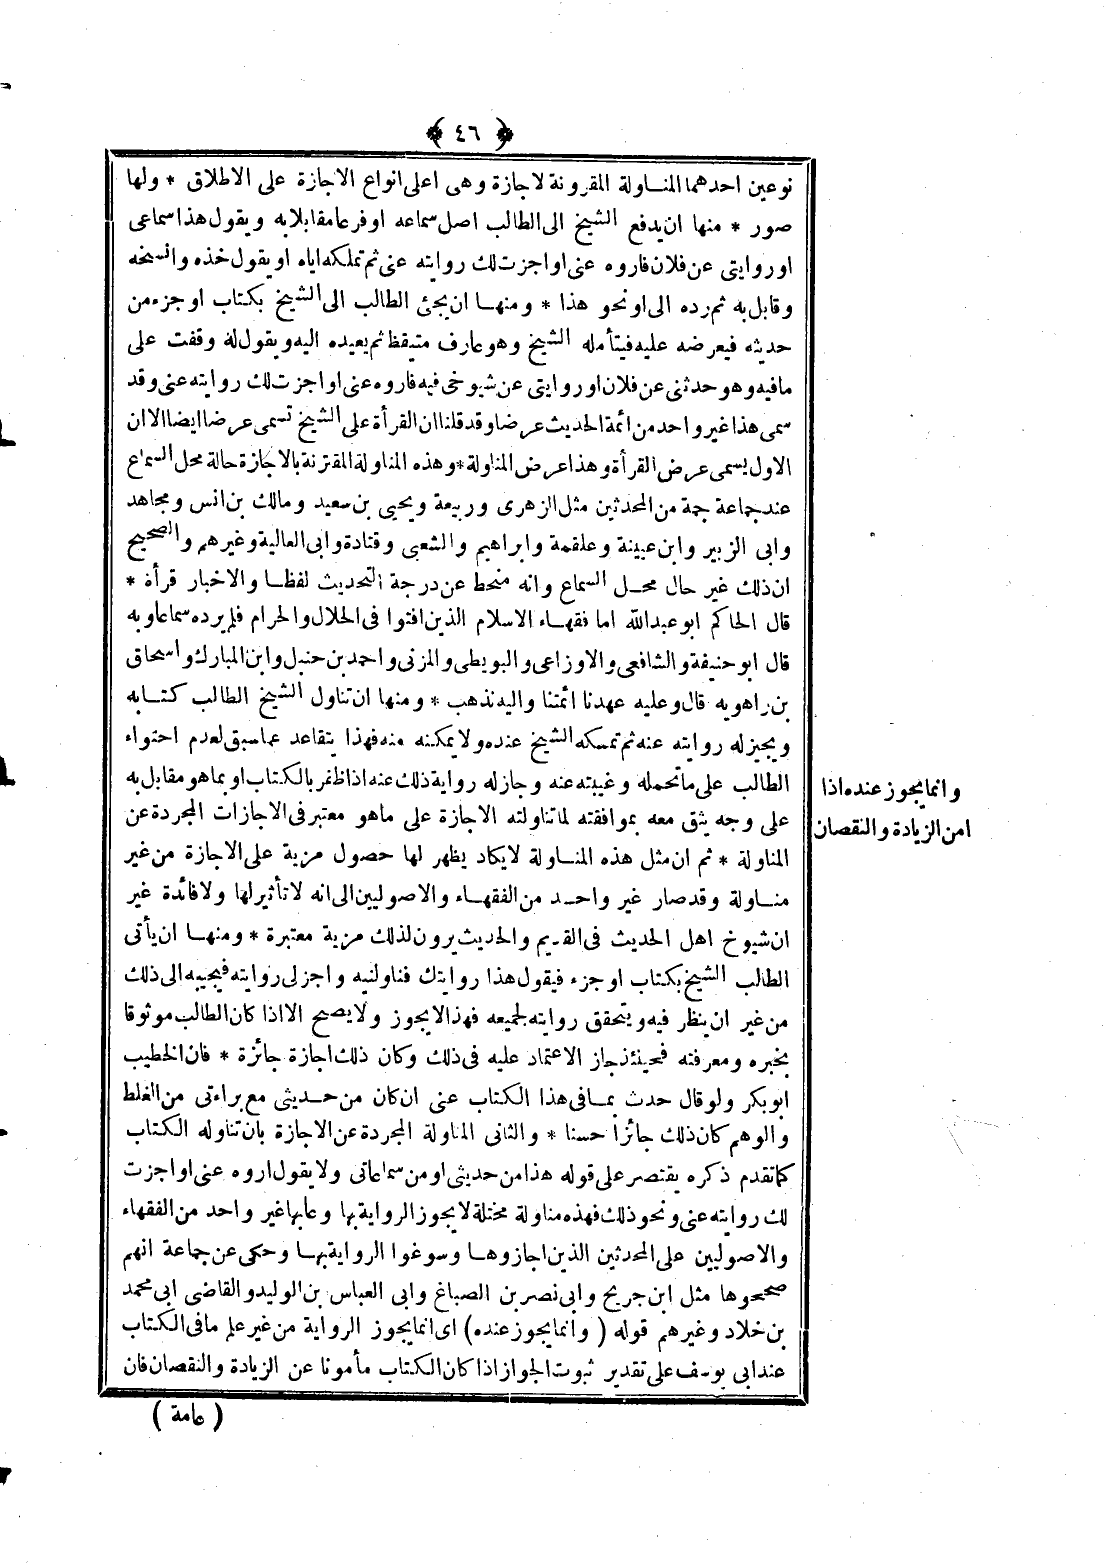 ﴿ ٤٦ ﴾
نوعين احدهما المناولة المقرونة لاجازة وهى اعلى انواع الاجازة على الاطلاق * ولها
صور * منها ان يدفع الشيخ الى الطالب اصل سماعه او فرعا مقابلا به ويقول هذا سماعى
او روايتى عن فلان فاروه عنى او اجزت لك روايته عنى ثم تملكه اياه او يقول خذه وانسخه
وقابل به ثم رده الى او نحو هذا * ومنها ان يجئ الطالب الى الشيخ بكتاب او جزء من
حديثه فيعرضه عليه فيتأمله الشيخ وهو عارف متيقظ ثم يعيده اليه ويقول له وقفت على
مافيه وهو حدثنى عن فلان او روايتى عن شيوخى فيه فاروه عنى او اجزت لك روايته عنى وقد
سمى هذا غير واحد من ائمة الحديث عرضا وقد قلنا ان القرأة على الشيخ تسمى عرضا ايضا الا ان
الاول يسمى عرض القرأة وهذا عرض المناولة * وهذه المناولة المقترنة بالاجازة حالة محل السماع
عند جماعة جمة من المحدثين مثل الزهرى وربيعة ويحيى بن سعيد ومالك بن انس ومجاهد
وابى الزبير وابن عيينة وعلقمة وابراهيم والشعبى وقتادة وابى العالية وغيرهم والصحيح
ان ذلك غير حال محل السماع وانه منحط عن درجة التحديث لفظا والاخبار قرأة *
قال الحاكم ابو عبدالله اما فقهاء الاسلام الذين افتوا فى الحلال والحرام فلم يرده سماعا وبه
قال ابو حنيفة والشافعى والاوزاعى والبويطى والمزنى واحمد بن حنبل وابن المبارك واسحاق
بن راهويه قال وعليه عهدنا ائمتنا واليه نذهب * ومنها ان تناول الشيخ الطالب كتابه
ويجيز له روايته عنه ثم تمسكه الشيخ عنده ولا يمكنه منه فهذا يتقاعد عما سبق لعدم احتواء
الطالب على ماتحمله وغيبته عنه وجاز له رواية ذلك عنه اذا ظفر بالكتاب او بما هو مقابل به
على وجه يثق معه بموافقته لماتناولته الاجازة على ماهو معتبر فى الاجازات المجردة عن
المناولة * ثم ان مثل هذه المناولة لايكاد يظهر لها حصول مزية على الاجازة من غير
مناولة وقد صار غير واحد من الفقهاء والاصوليين الى انه لا تأثير لها ولا فائدة غير
ان شيوخ اهل الحديث فى القديم والحديث يرون لذلك مزية معتبرة * ومنها ان يأتى
الطالب الشيخ بكتاب او جزء فيقول هذا روايتك فناولنيه واجز لى روايته فيجيبه الى ذلك
من غير ان ينظر فيه ويتحقق روايته لجميعه فهذا لايجوز ولا يصح الا اذا كان الطالب موثوقا
بخبره ومعرفته فحينئذ جاز الاعتماد عليه فى ذلك وكان ذلك اجازة جائزة * فان الخطيب
ابوبكر ولو قال حدث بما فى هذا الكتاب عنى ان كان من حديثى مع براءتى من الغلط
والوهم كان ذلك جائزا حسنا * والثانى المناولة المجردة عن الاجازة بان تناوله الكتاب
كما تقدم ذكره يقتصر على قوله هذا من حديثى او من سماعاتى ولا يقول اروه عنى او اجزت
لك روايته عنى ونحو ذلك فهذه مناولة مختلة لا يجوز الرواية بها وعابها غير واحد من الفقهاء
والاصوليين على المحدثين الذين اجازوها وسوغوا الرواية بها وحكى عن جماعة انهم
صححوها مثل ابن جريج وابى نصر بن الصباغ وابى العباس بن الوليد والقاضى ابى محمد
بن خلاد وغيرهم قوله ( وانما يجوز عنده ) اى انما يجوز الرواية من غير علم مافى الكتاب
عند ابى يوسف على تقدير ثبوت الجواز اذا كان الكتاب مأمونا عن الزيادة والنقصان فان
وانما يجوز عنده اذا
امن الزيادة والنقصان
( عامة )